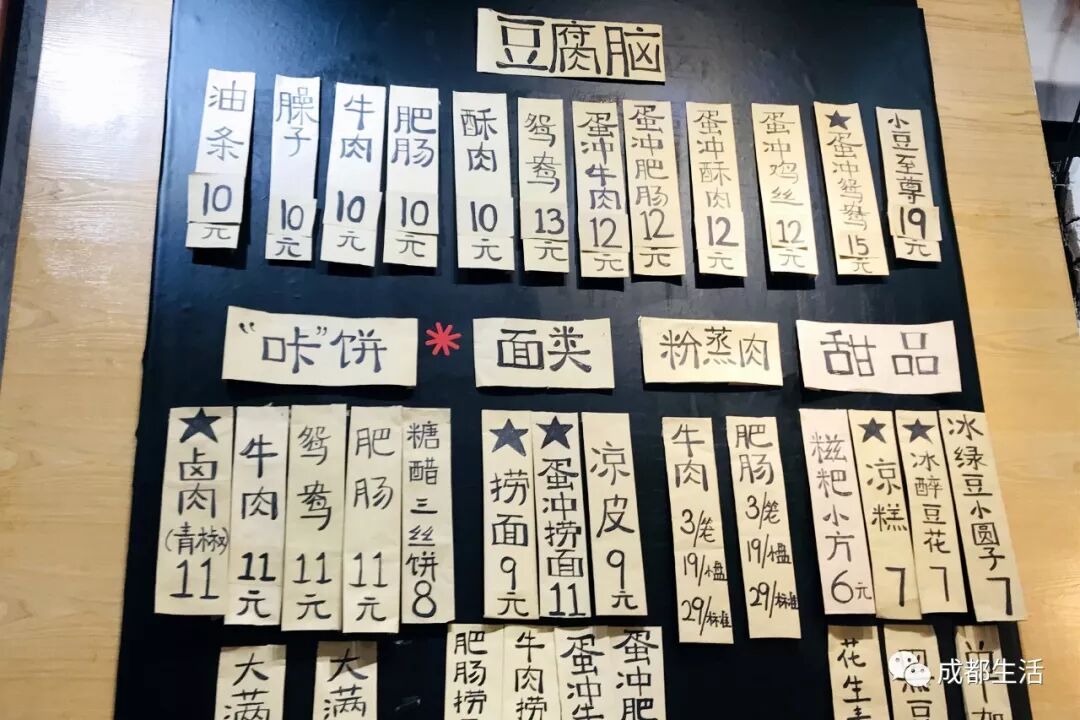 豆腐脑
油条 10元
臊子 10元
牛肉 10元
肥肠 10元
酥肉 10元
鸳鸯 13元
蛋冲牛肉 12元
蛋冲肥肠 12元
蛋冲酥肉 12元
蛋冲鸡丝 12元
★蛋冲鸳鸯 15元
小豆至尊 19元
“咔”饼
面类
粉蒸肉
甜品
★卤肉(青椒) 11
牛肉 11元
鸳鸯 11元
肥肠 11元
糖醋三丝饼 8
★捞面 9元
★蛋冲捞面 11
凉皮 9元
牛肉 3/笼 19/小盘 29/标准
肥肠 3/笼 19/小盘 29/标准
糍粑小方 6元
★凉糕 7
★冰醉豆花 7
冰绿豆小圆子 7
大满
大满
肥肠捞
牛肉捞
蛋冲牛
蛋冲肥
花生
成都生活